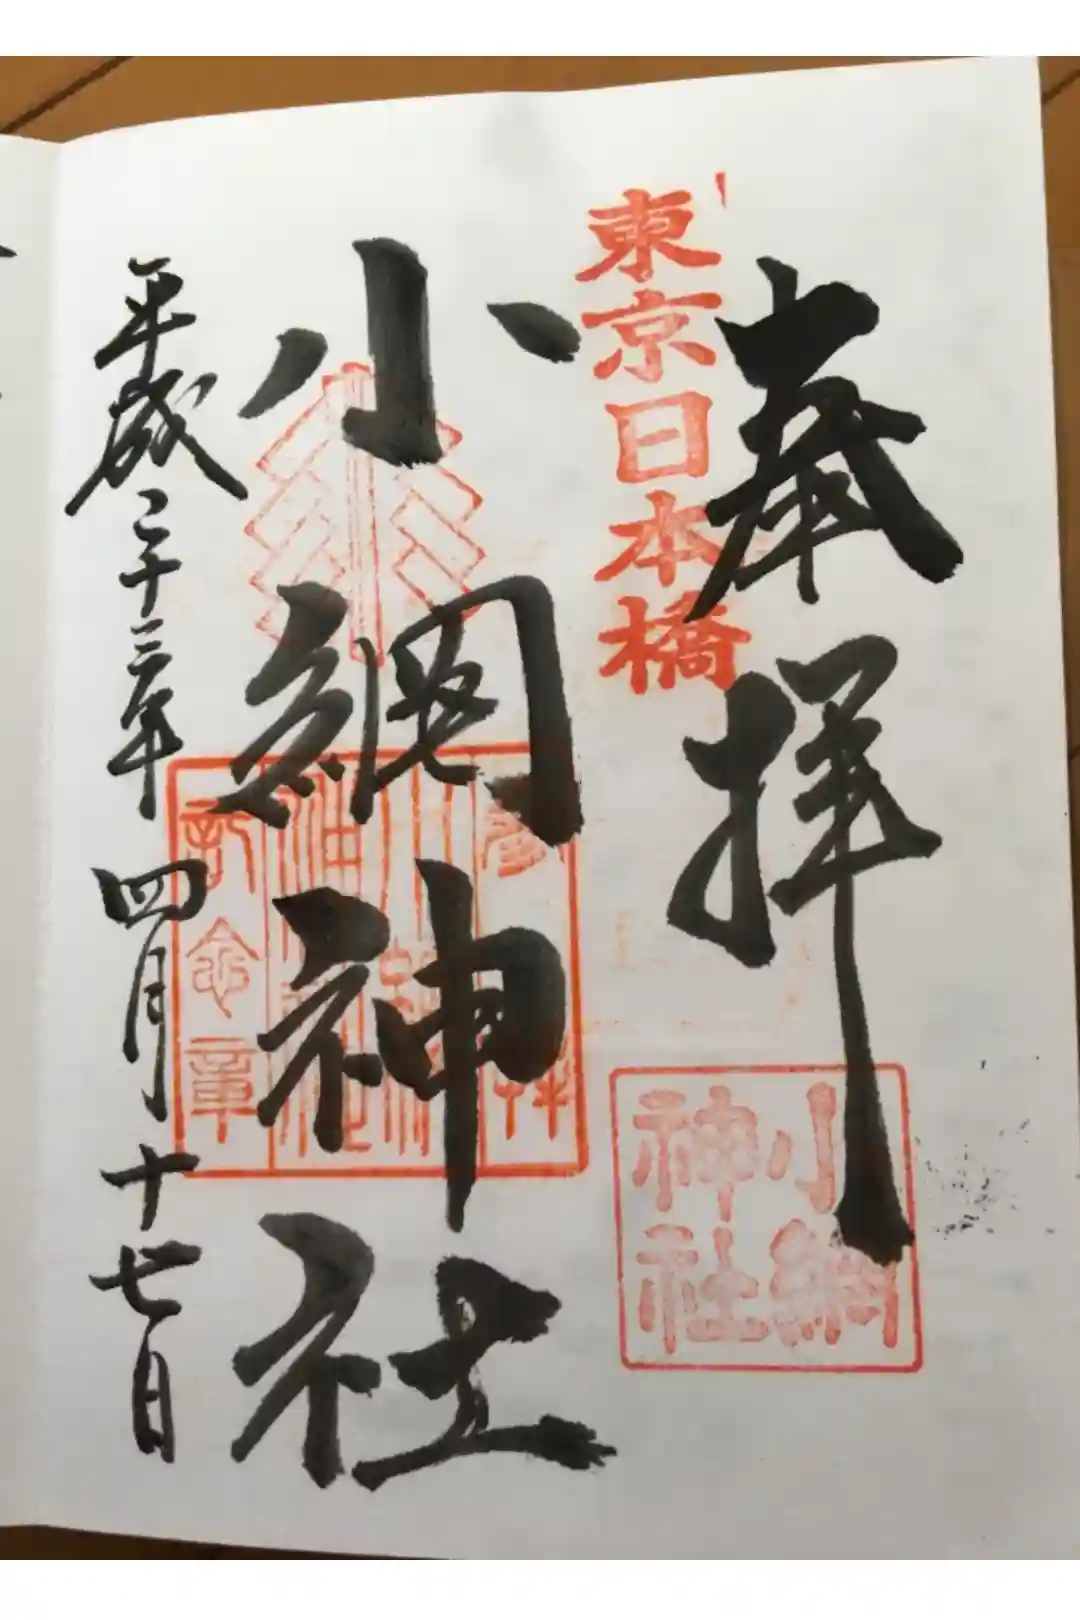 奉拝
東京日本橋
小網神社
小網神社
参拝
小網
神社
記念章
平成二十三年四月十七日